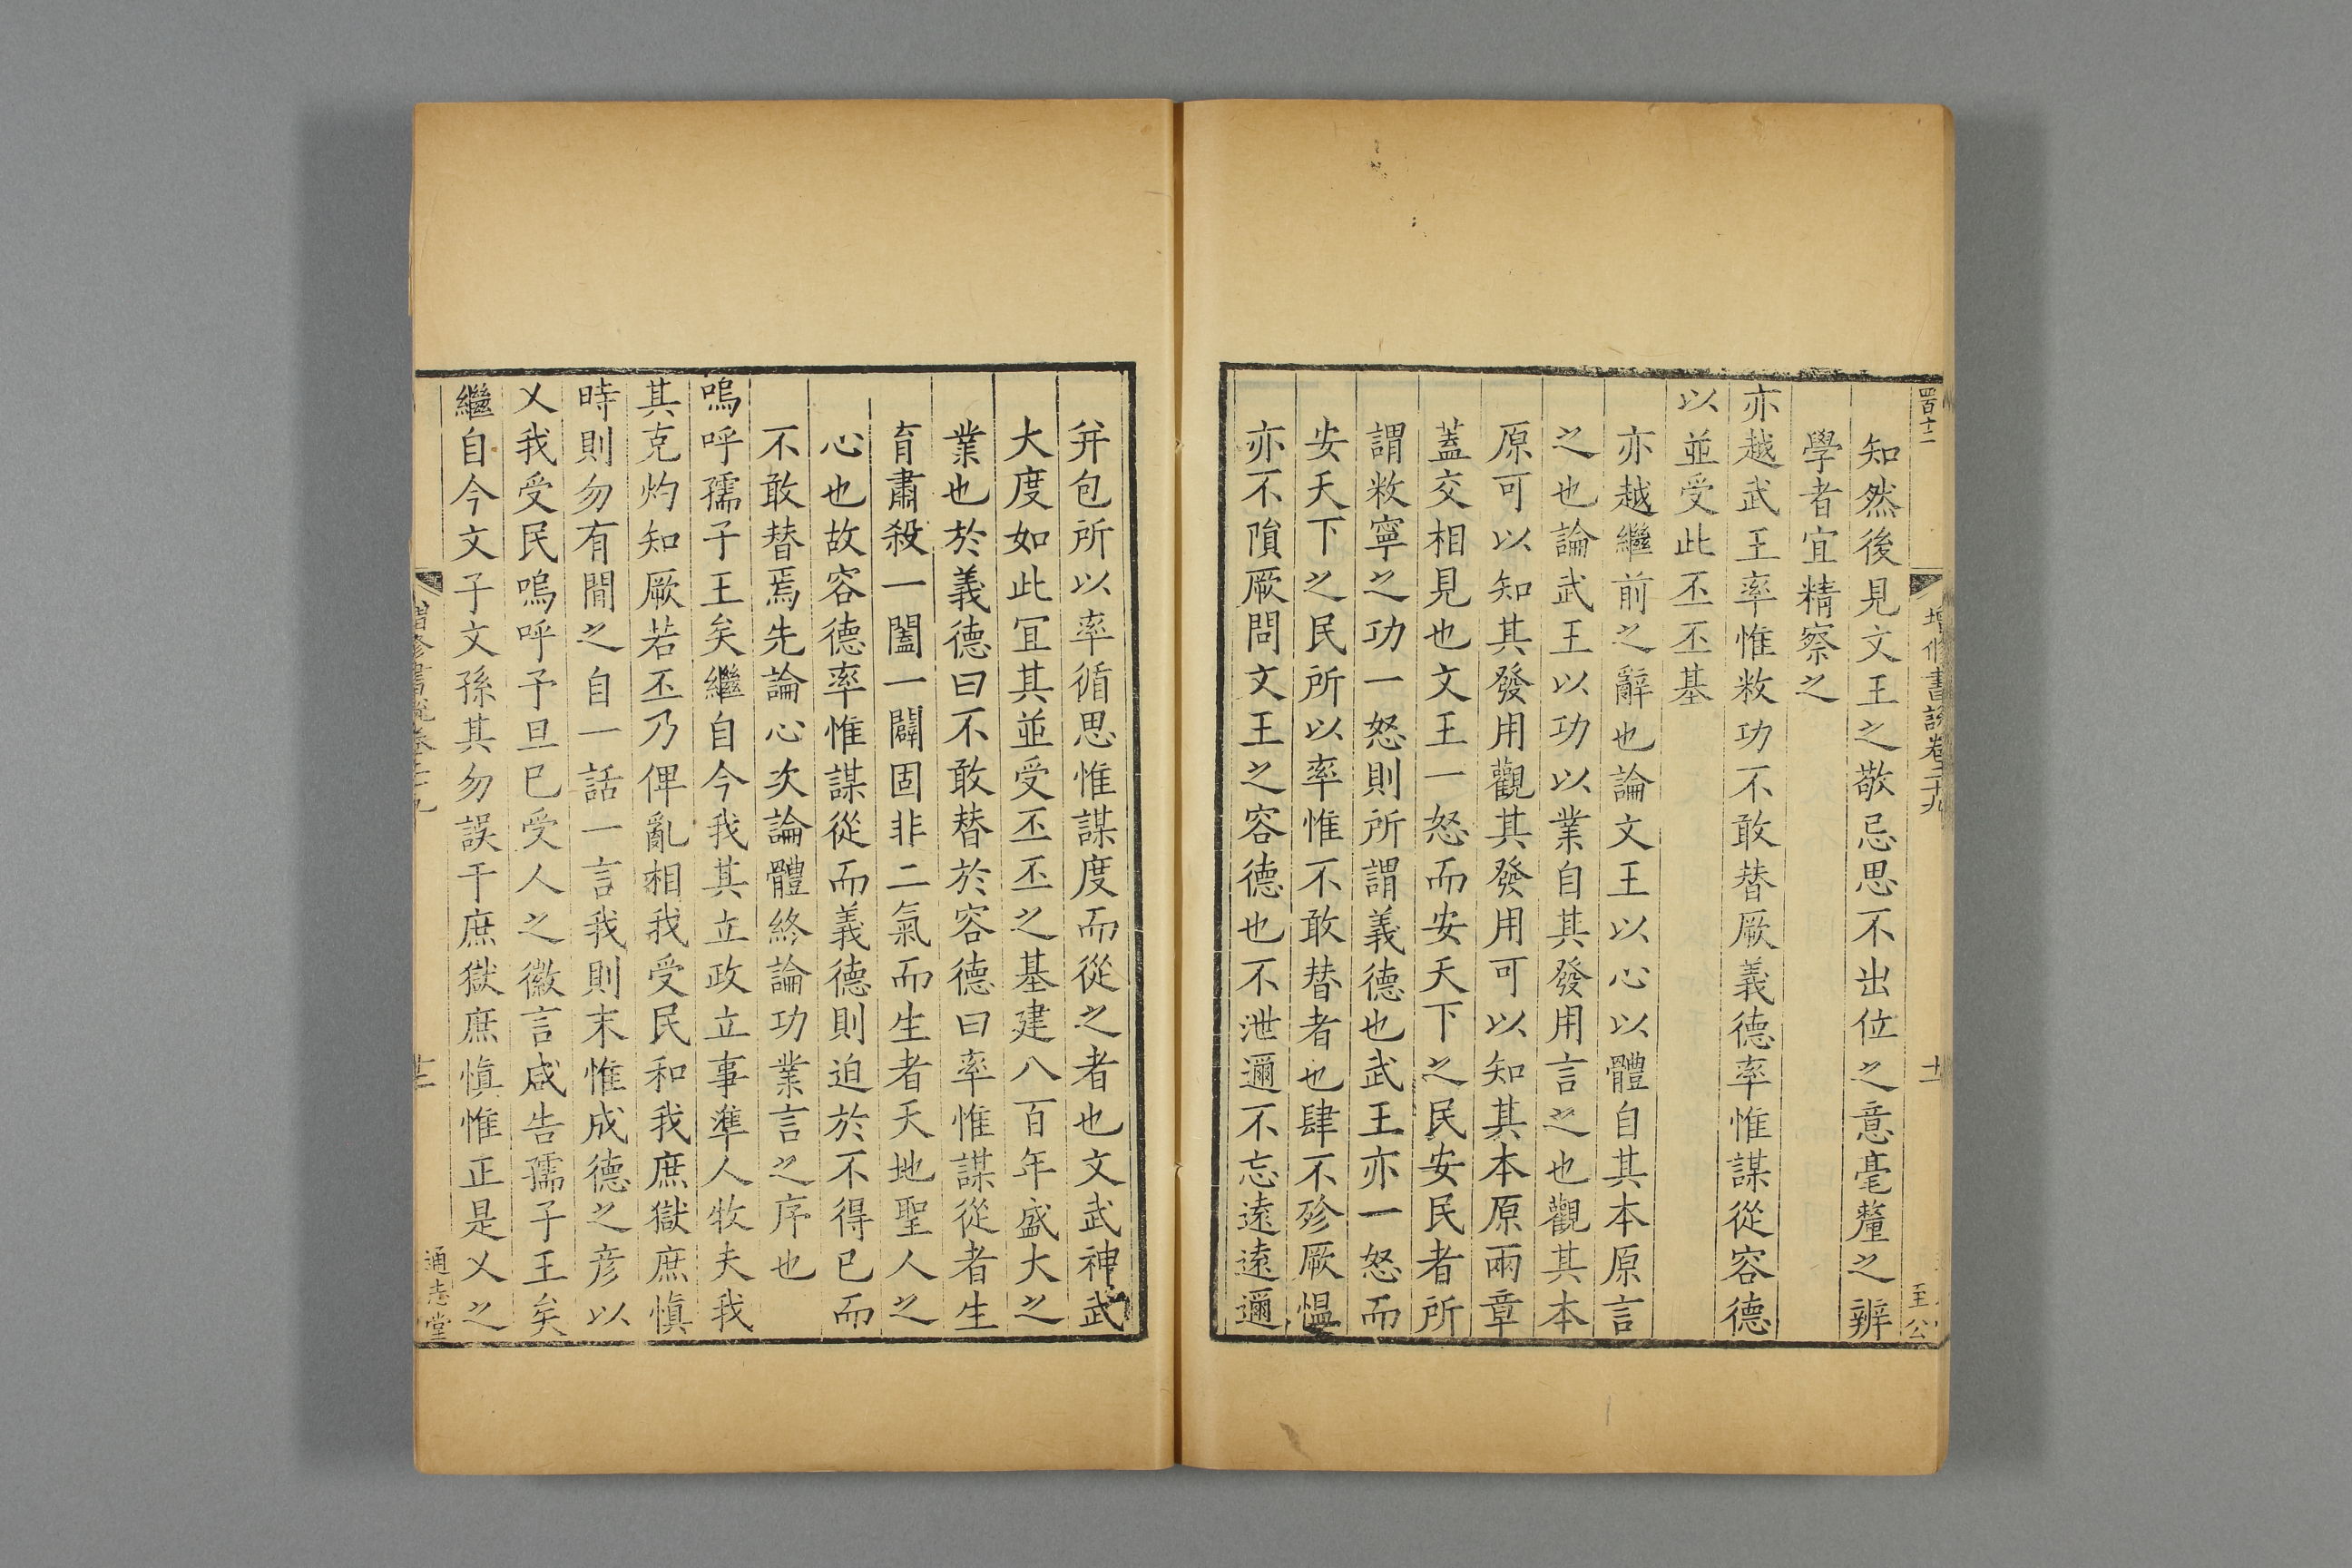 四百十二
增修書說卷二十九
十一
至公
知然後見文王之敬忌思不出位之意毫釐之辨
學者宜精察之
亦越武王率惟敉功不敢替厥義德率惟謀從容德
以並受此丕丕基
亦越繼前之辭也論文王以心以體自其本原言
之也論武王以功以業自其發用言之也觀其本
原可以知其發用觀其發用可以知其本原兩章
蓋交相見也文王一怒而安天下之民安民者所
謂敉寧之功一怒則所謂義德也武王亦一怒而
安天下之民所以率惟不敢替者也肆不殄厥慍
亦不隕厥問文王之容德也不泄邇不忘遠遠邇
幷包所以率循思惟謀度而從之者也文武神武
大度如此宜其並受丕丕之基建八百年盛大之
業也於義德曰不敢替於容德曰率惟謀從者生
育肅殺一闔一闢固非二氣而生者天地聖人之
心也故容德率惟謀從而義德則迫於不得已而
不敢替焉先論心次論體終論功業言之序也
嗚呼孺子王矣繼自今我其立政立事準人牧夫我
其克灼知厥若丕乃俾亂相我受民和我庶獄庶慎
時則勿有間之自一話一言我則末惟成德之彥以
乂我受民嗚呼予旦已受人之徽言咸告孺子王矣
繼自今文子文孫其勿誤于庶獄庶慎惟正是乂之
增修書說卷二十九
通志堂